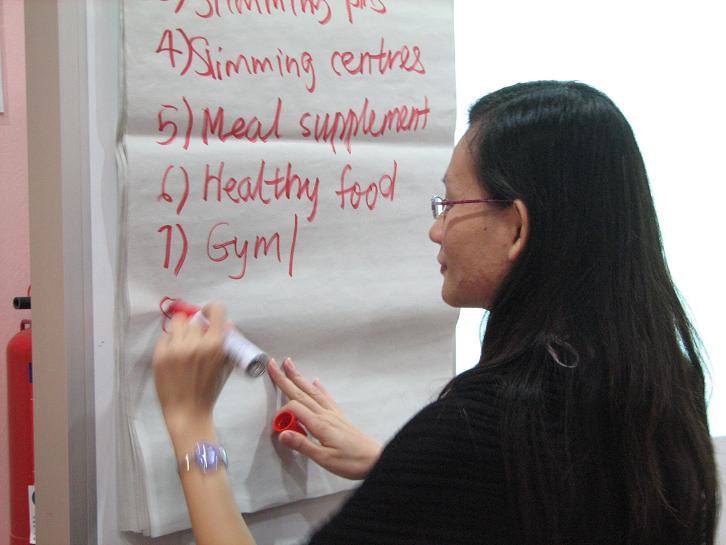 3) Slimming pills
4) Slimming centres
5) Meal supplement
6) Healthy food
7) Gym/